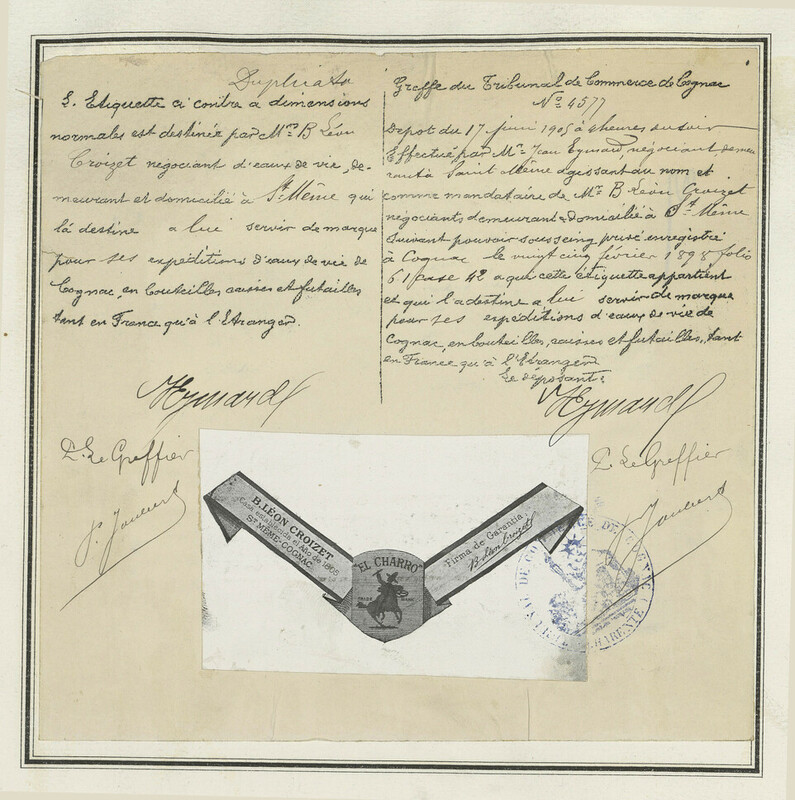 Duplicata
L'Etiquette ci contre a dimensions
normales est destinée par Mr B Léon
Croizet négociant d'eaux de vie, de-
meurant et domicilié à St Même qui
la destine a lui servir de marque
pour ses expéditions d'eaux de vie de
Cognac, en bouteilles caisses et futailles
tant en France qu'à l'Etranger.
Eymard
P. Le Greffier
Greffe du Tribunal de Commerce de Cognac
No 4577
Depot du 17 juin 1905 à heures du soir
Effectué par Mr Jean Eymard, négociant demeu
rant à Saint Même agissant au nom et
comme mandataire de Mr B Léon Croizet
négociants demeurant & domicilié à St Même
suivant pouvoir sous seing privé enregistré
à Cognac le vingt cinq février 1898 folio
61 case 42 a qui cette étiquette appartient
et qui l'a destine a lui servir de marque
pour ses expéditions d'eaux de vie de
Cognac, en bouteilles, caisses et futailles, tant
en France qu'à l'Etranger
Le déposant:
Eymard
P. Le Greffier
B. LÉON CROIZET
Casa establecida el Año de 1805
ST MÊME-COGNAC
"EL CHARRO"
TRADE MARK
Firma de Garantía
B Léon Croizet
CHARENTE